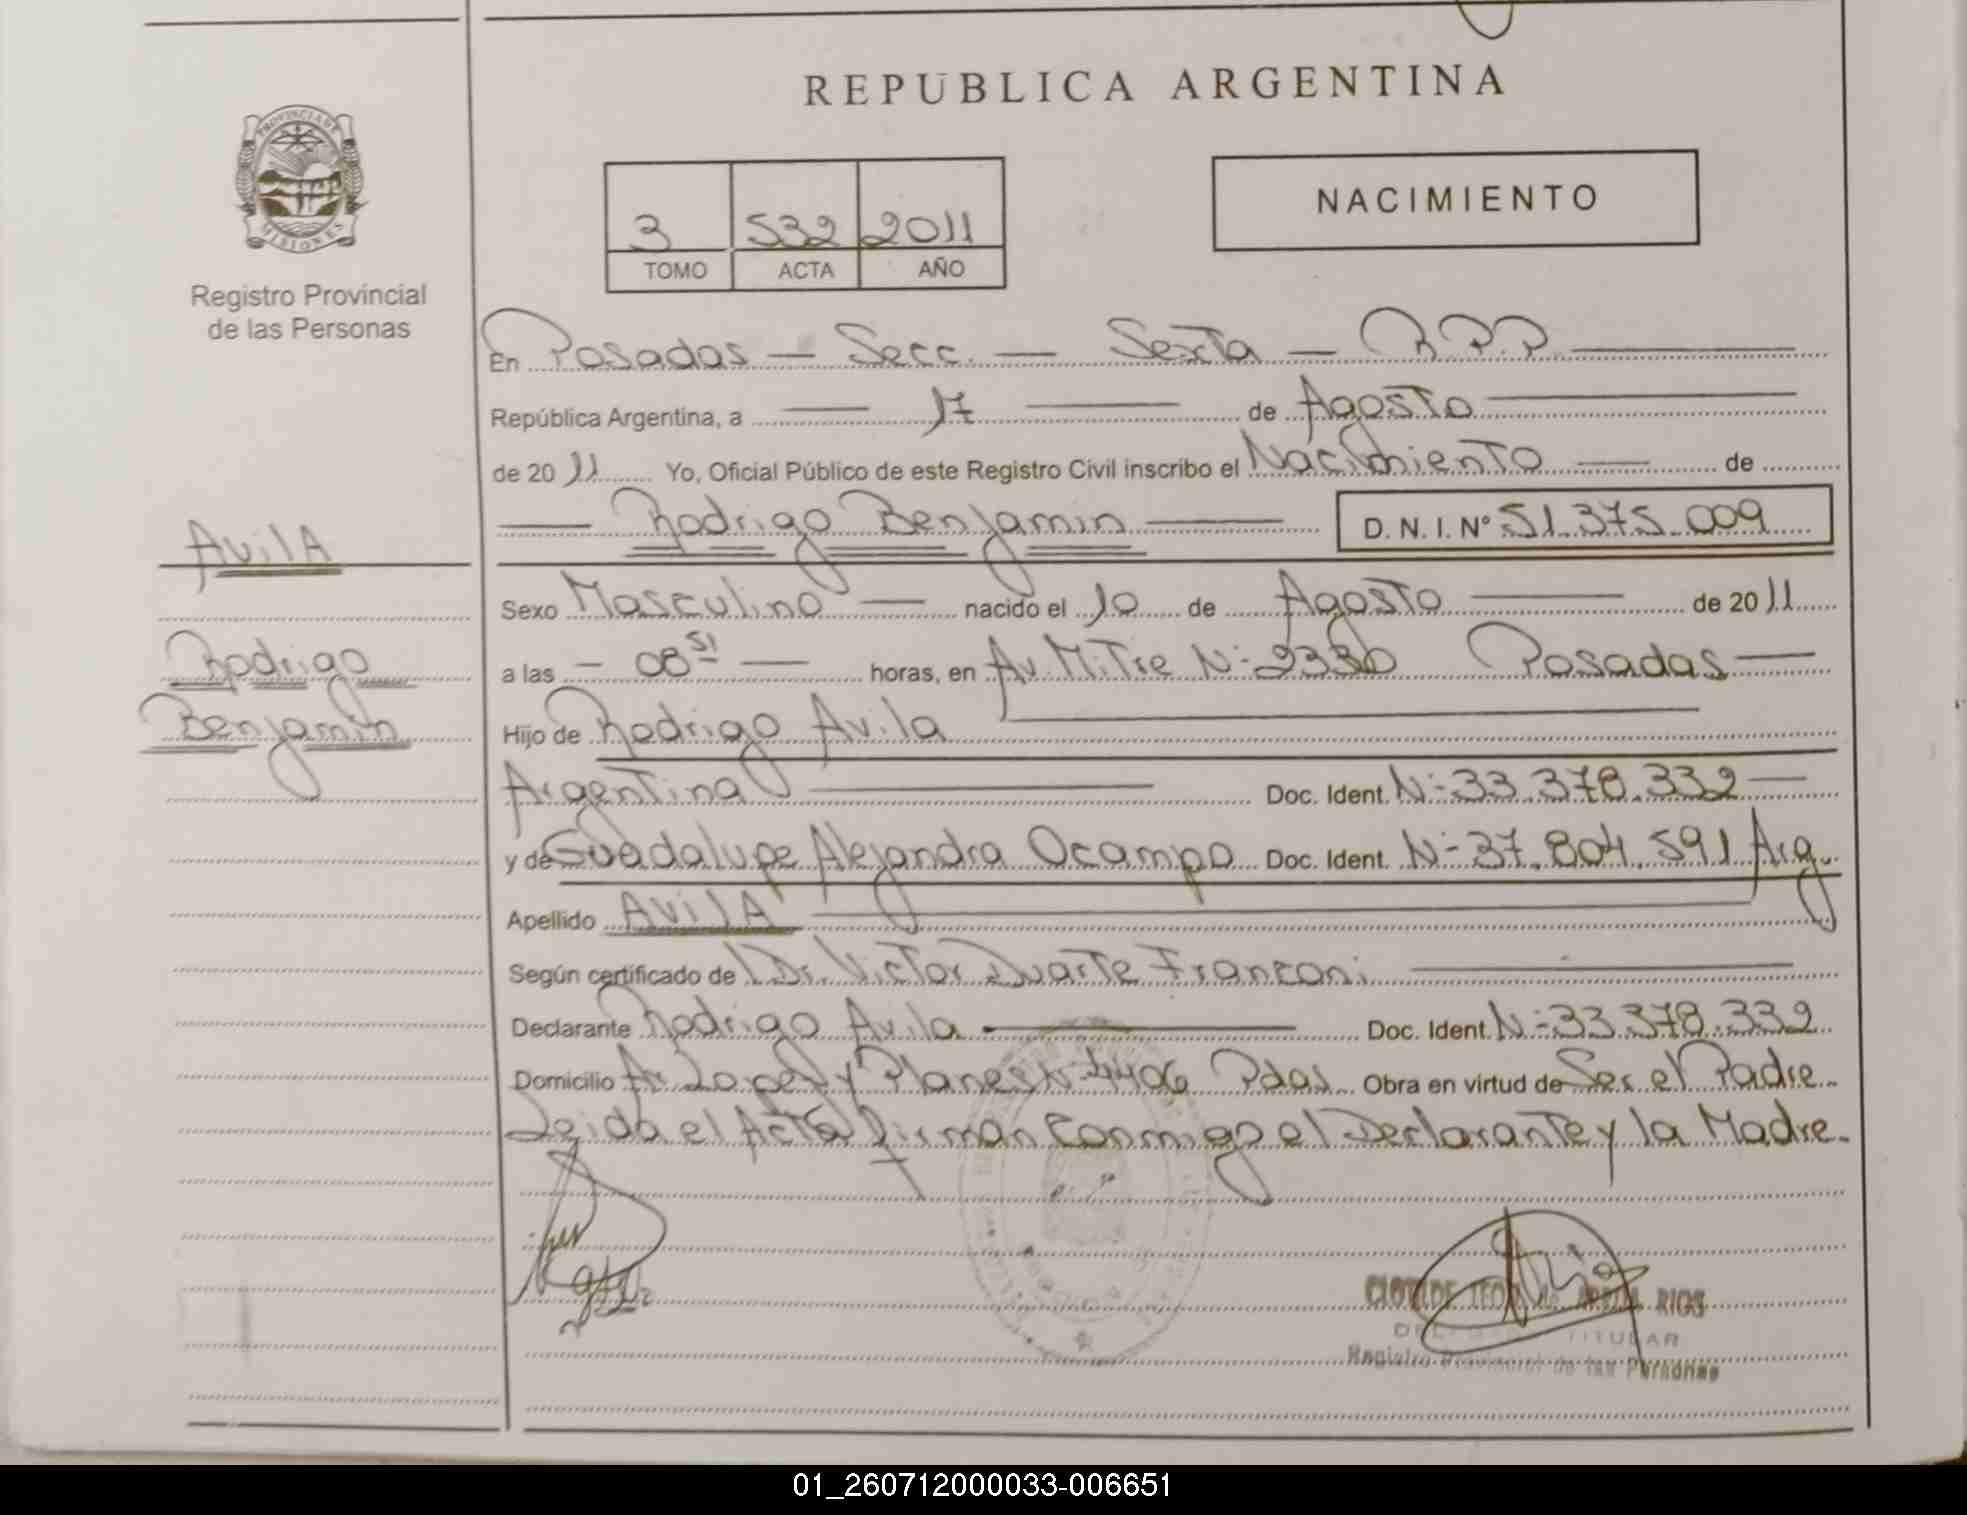 REPUBLICA ARGENTINA
PROVINCIA DE MISIONES
Registro Provincial
de las Personas
3 532 2011
TOMO ACTA AÑO
NACIMIENTO
En Posadas — Secc. — Sexta — R.P.P
República Argentina, a — 17 — de Agosto
de 2011 Yo, Oficial Público de este Registro Civil inscribo el Nacimiento — de
— Rodrigo Benjamin — D. N. I. Nº 51.375.009
AvilA
Rodrigo
Benjamin
Sexo Masculino — nacido el 10 de Agosto — de 2011
a las — 08 51 — horas, en Av. Mitre N: 2330 Posadas —
Hijo de Rodrigo Avila
Argentina — Doc. Ident. N: 33.378.332 —
y de Guadalupe Alejandra Ocampo Doc. Ident. N: 37.804.591 Arg.
Apellido AvilA
Según certificado de Dr. Victor Duarte Franconi
Declarante Rodrigo Avila — Doc. Ident. N: 33.378.332
Domicilio Av. Lopez y Planes N: 4406 Pdas. Obra en virtud de Ser el Padre.
Leida el Acta firman conmigo el Declarante y la Madre.
CLOTILDE RIOS
TITULAR
Registro Provincial de las Personas
01_260712000033-006651